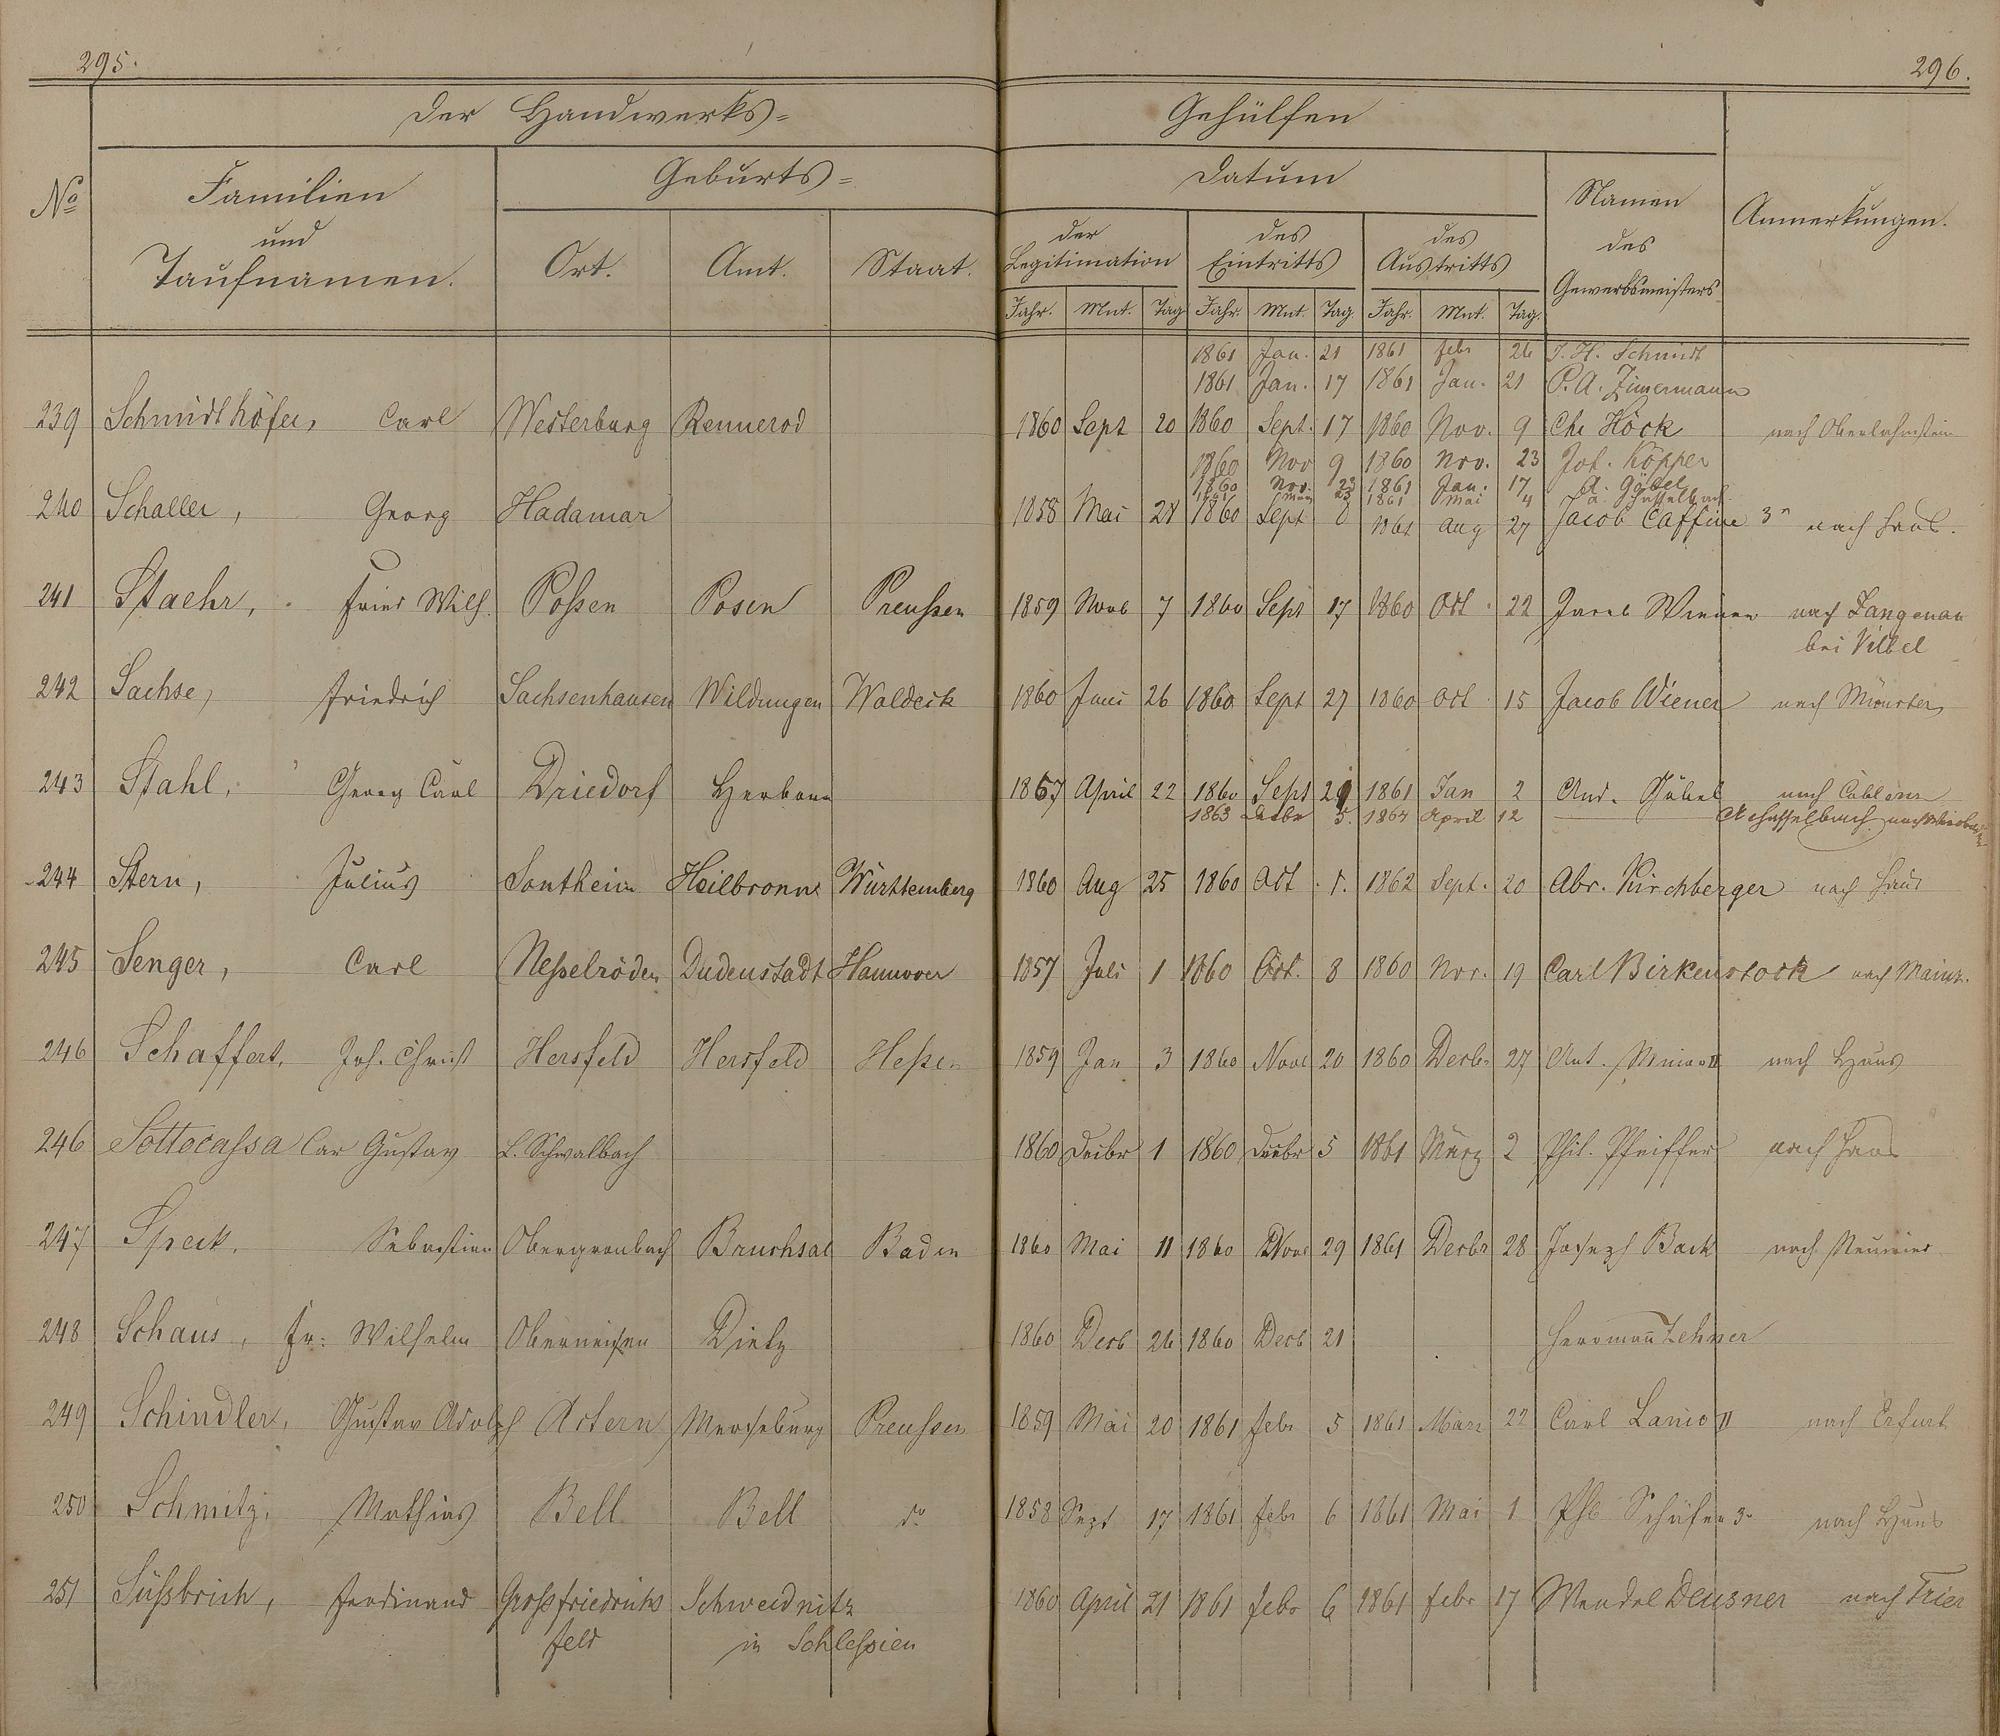 295.
296.
Der Handwerks=
Gehülfen
No
Familien
und
Taufnamen.
Geburts=
Ort.
Amt.
Staat.
Datum
der
Legitimation
des
Eintritts
des
Austritts
Jahr. Mnt. Tag Jahr. Mnt. Tag. Jahr. Mnt. Tag.
Namen
des
Gewerbsmeisters
Anmerkungen.
1861 Jan. 21 1861 febr 26 J. H. Schmidt
1861 Jan. 17 1861 Jan. 21 P. A. Zimermann
239 Schmidthöfer, Carl Westerburg Rennerod 1860 Sept 20 1860 Sept. 17 1860 Nov. 9 Chr Höck nach Oberlahnstein
1860 Nov 9 1860 Nov. 23 Joh. Köpper
1860 Nov. 23 1861 Jan. 17 A. Göbel
1861 1861 Mai 4
240 Schaller, Georg Hadamar 1858 Mai 28 1860 Sept 8 1861 Aug 27 Jacob Caffine 3r nach Haus.
241 Staehr, Fried Wilh. Poßen Posen Preußen 1859 Novb 7 1860 Sept 17 1860 Oct. 22 Jacob Wiener nach Langenau
bei Vilbel
242 Sachse, Friedrich Sachsenhausen Wildungen Waldeck 1860 Juni 26 1860 Sept 27 1860 Oct 15 Jacob Wiener nach Münster
243 Stahl, Georg Carl Driedorf Herborn 1857 April 22 1860 Sept 29 1861 Jan 2 And. Göbel nach Coblenz
1863 Decbr 5. 1864 April 12 A Hasselbach nach Wiesbaden
244 Stern, Julius Sontheim Heilbronn Württemberg 1860 Aug 25 1860 Oct. 1. 1862 Sept. 20 Abr. Kirchberger nach Haus
245 Senger, Carl Neßelröden Dudenstadt Hannover 1857 Juli 1 1860 Oct. 8 1860 Nov. 19 Carl Birkenstock nach Mainz.
246 Schaffert, Joh. Christ Hersfeld Hersfeld Heßen 1859 Jan 3 1860 Novb 20 1860 Decbr 27 Ant. Minor II nach Haus
246 Sottocaßa Car Gustav L. Schwalbach 1860 Decbr 1 1860 Decbr 5 1861 März 2 Phil. Pfeiffer nach Haus
247 Speck. Sebastian Obergrombach Bruchsal Baden 1860 Mai 11 1860 Novb 29 1861 Decbr 28 Joseph Back nach Neuwied
248 Schaus, Fr: Wilhelm Oberneisen Dietz 1860 Decb 26 1860 Decb 21 Herrmann Lehner
249 Schindler, Gustav Adolph Artern Merseburg Preußen 1859 Mai 20 1861 febr 5 1861 März 22 Carl Lanio II nach Erfurt
250 Schmitz, Mathias Bell Bell do 1858 Sept 17 1861 febr 6 1861 Mai 1 Phl Schäfer 3r nach Haus
251 Süßbrich, Ferdinand Großfriedrichs Schweidnitz 1860 April 21 1861 febr 6 1861 febr 17 Wendel Deusner nach Trier
feld in Schleßien